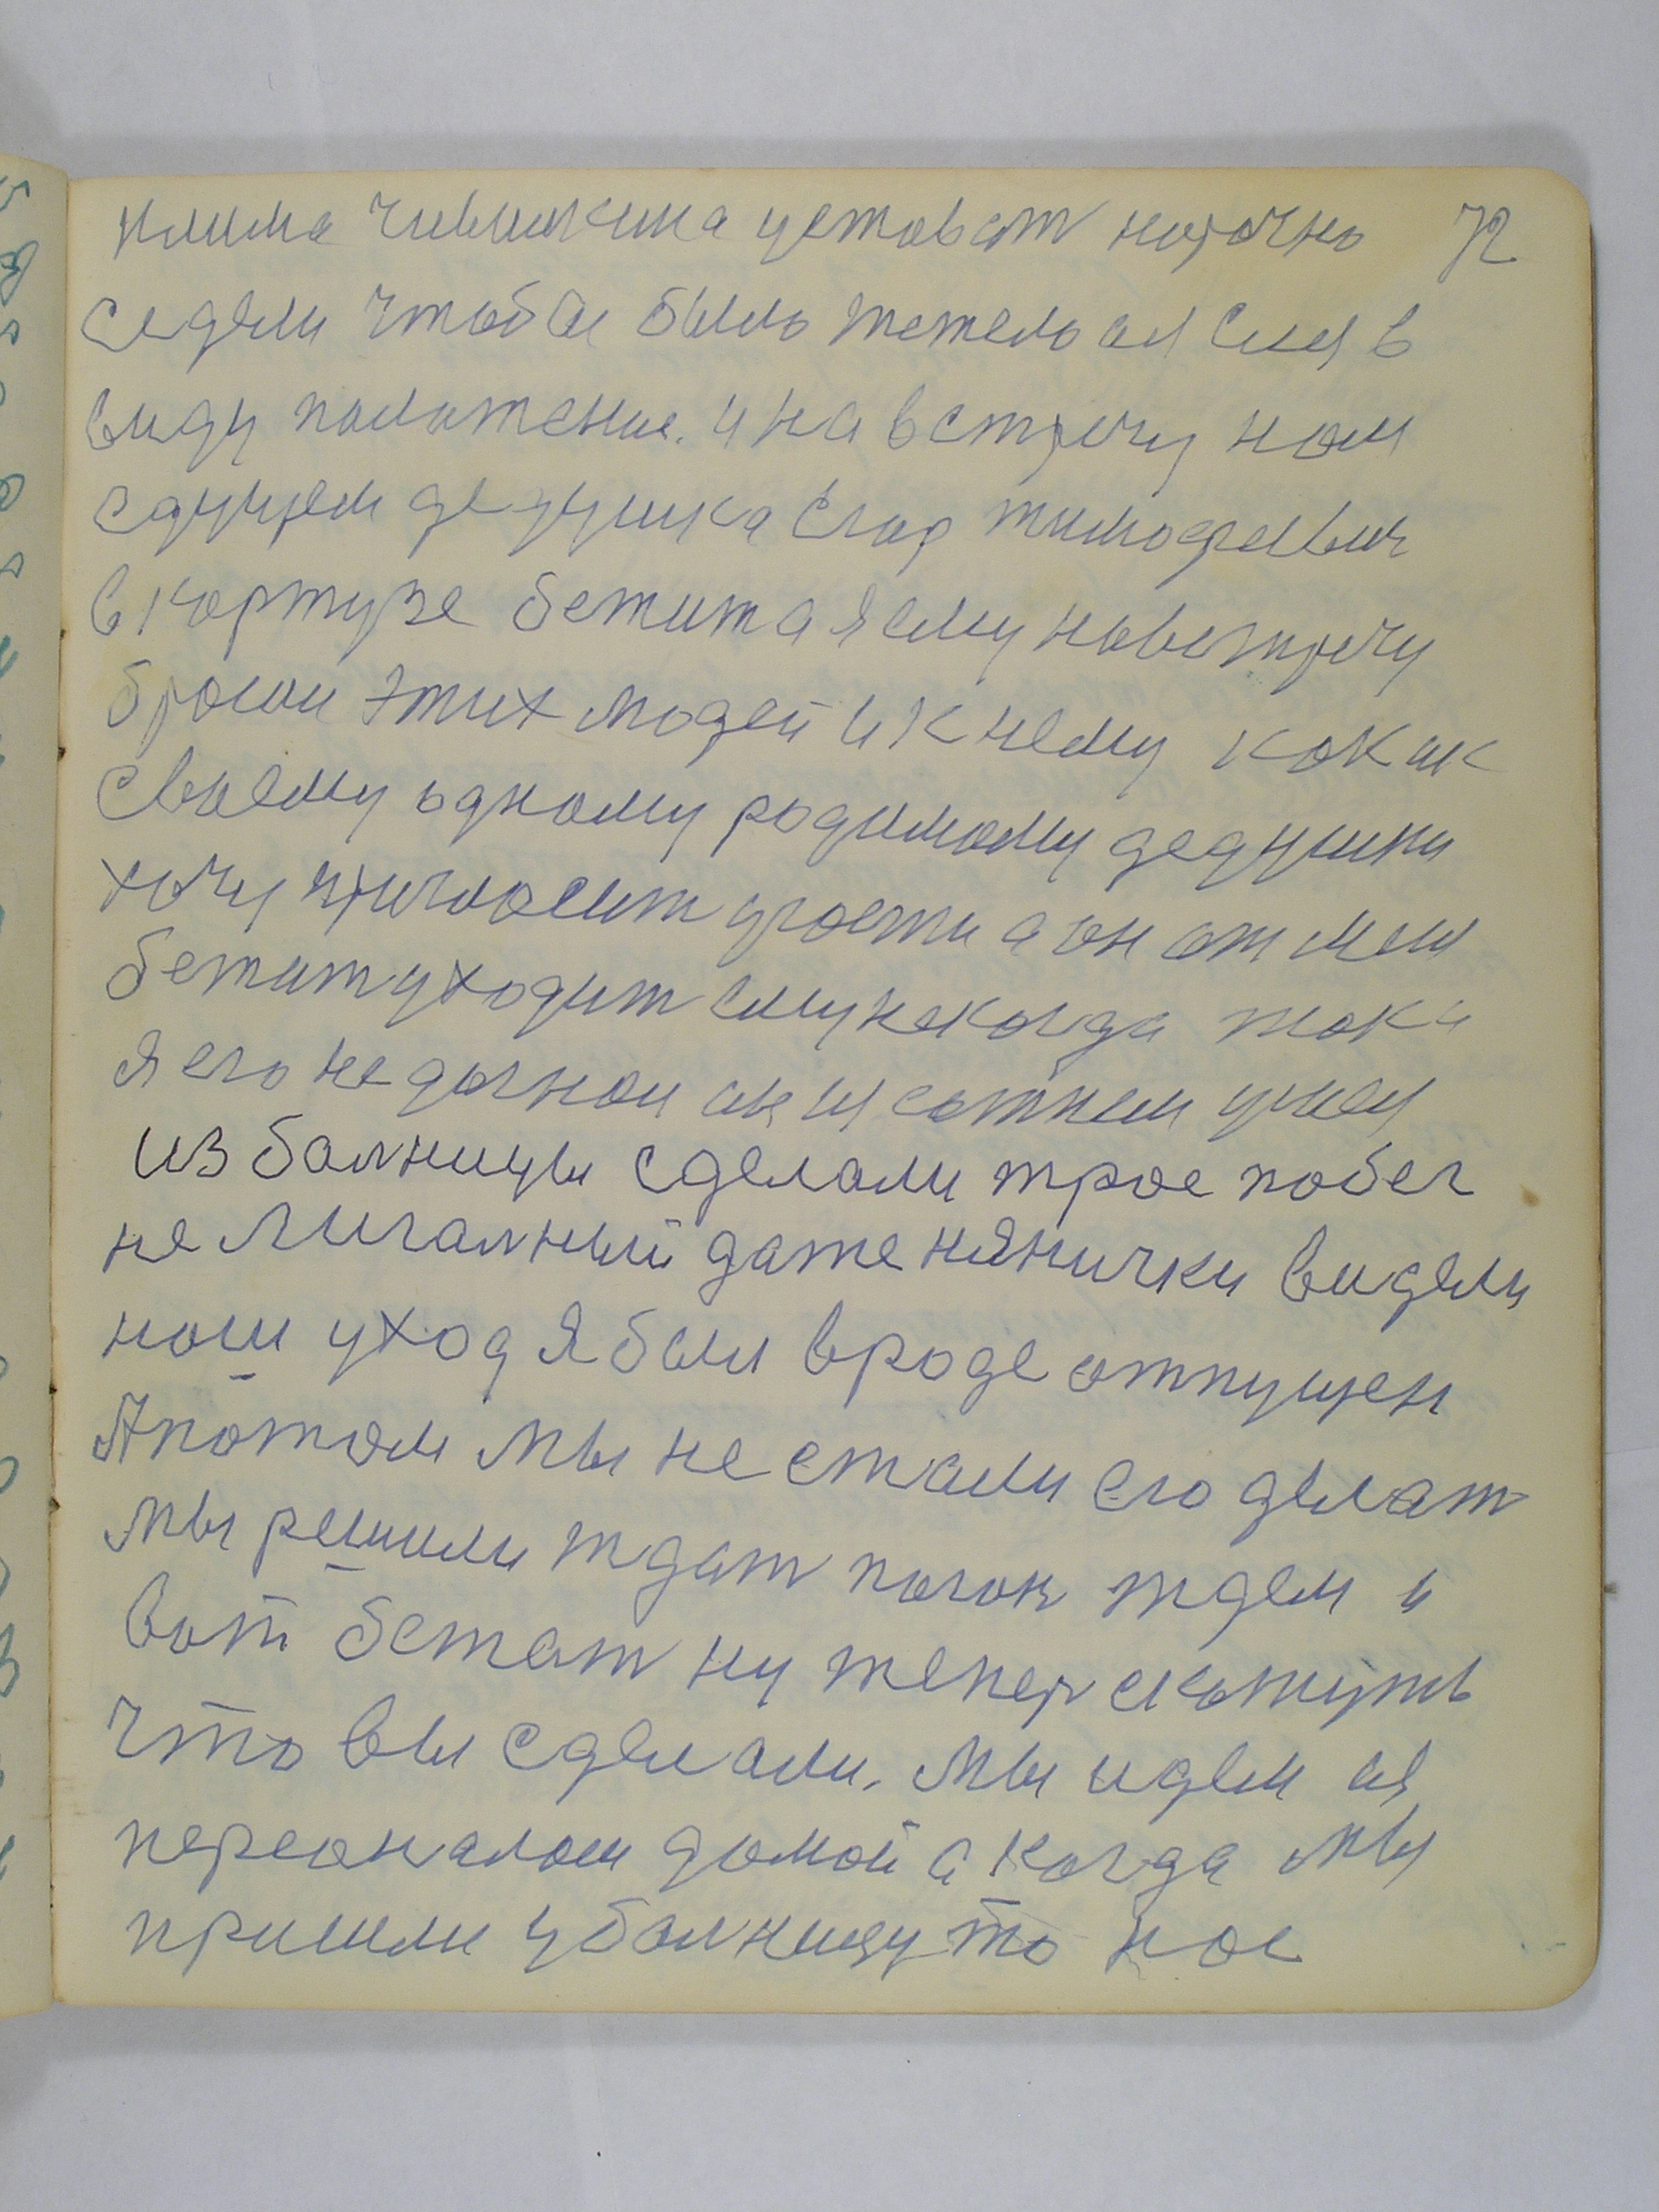 72
клима чивилихина уставет нарочно
седели чтобы было тежело ал сия в
виду положение. и на встречу нам
едущем дедушка Егор тимофеевич
в кортузе бежит а я ему навстречу
бросаи этих людей и к нему как ик
своему одному родимому дедушки
хочу пригласит угости а он от мен
бежит уходит ему некогда така
я его не догнал
из болницы сделали трое побег
не лигалный даже нянички видели
наш уход я был вроде отпущен
А потом мы не стали его делат
мы решили ждат погон ждем и
вот бежат ну тепер скажуть
что вы сделали. мы идем
персоналом домой а когда мы
пришли у болницу то нас